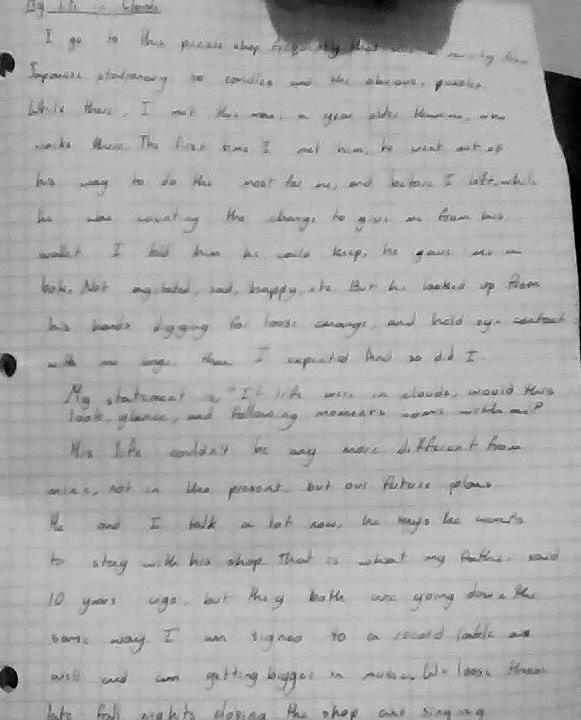 My life in Clouds
I go to this puzzle shop frequently that
Japanese stationary to candles and the obvious, puzzles.
While there, I met this man, a year older than me, who
works there. The first time I met him, he went out of
his way to do the most for me, and before I left, while
he was counting the change to give me from his
wallet I told him he could keep, he gave me a
look. Not agitated, sad, happy, etc. But he looked up from
his hands digging for loose change, and held eye contact
with me longer than I expected. And so did I.
My statement is, "If life were in clouds, would this
look, glance, and following moments come with me?"
His life couldn't be any more different from
mine, not in the present, but our future plans.
He and I talk a lot now, he says he wants
to stay with his shop. That is what my father said
10 years ago, but they both are going down the
same way. I am signed to a record lable as
well and am getting bigger in music. We
late fall nights closing the shop and singing